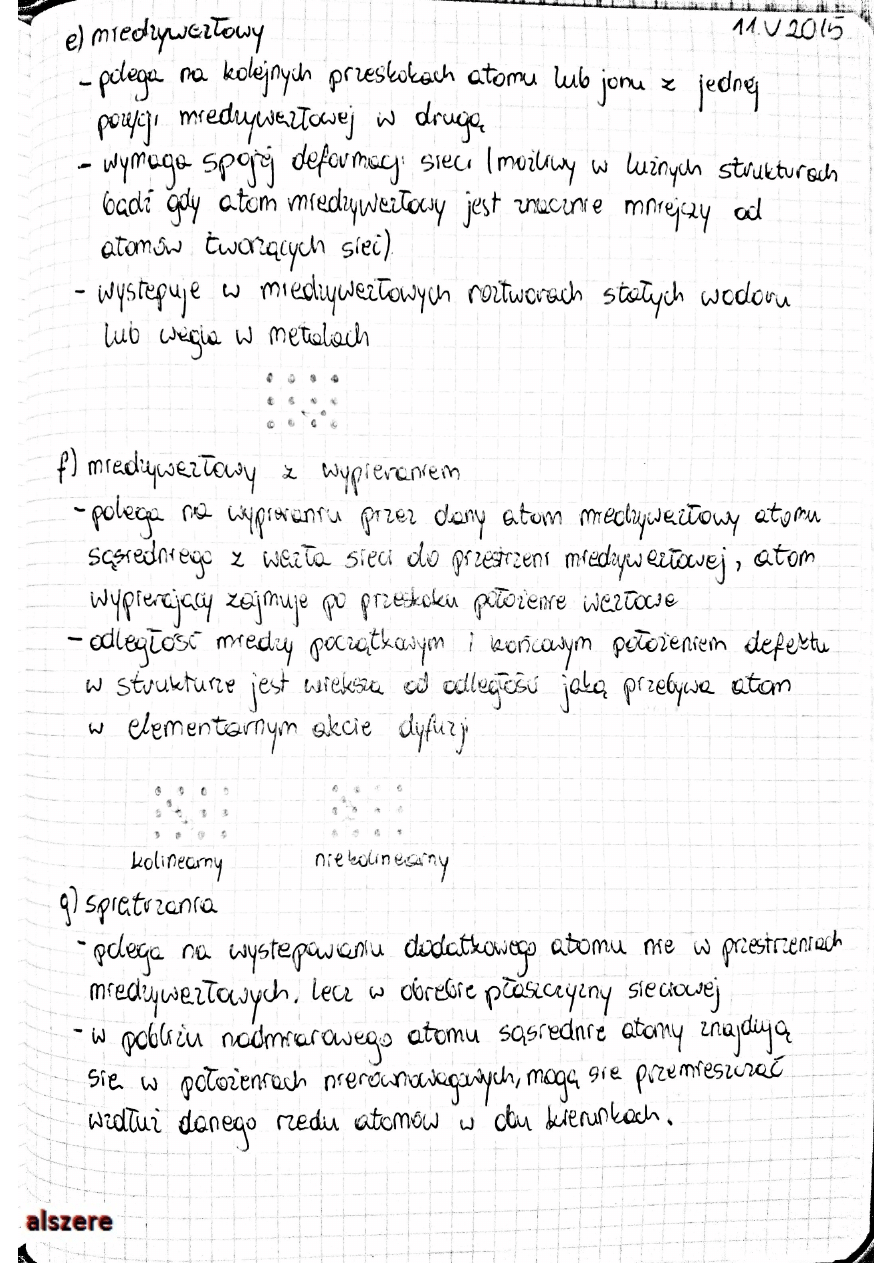 11.V 2015
e) międzywęzłowy
- polega na kolejnych przeskokach atomu lub jonu z jednej
pozycji międzywęzłowej w drugą
- wymaga spojej deformacji sieci (możliwy w luźnych strukturach
bądź gdy atom międzywęzłowy jest znacznie mniejszy od
atomów tworzących sieć)
- występuje w międzywęzłowych roztworach stałych wodoru
lub węgla w metalach
f) międzywęzłowy z wypieraniem
- polega na wypieraniu przez dany atom międzywęzłowy atomu
sąsiedniego z węzła sieci do przestrzeni międzywęzłowej, atom
wypierający zajmuje po przeskoku położenie węzłowe
- odległość między początkowym i końcowym położeniem defektu
w strukturze jest większa od odległości jaką przebywa atom
w elementarnym akcie dyfuzji
kolinearny niekolinearny
g) spiętrzania
- polega na występowaniu dodatkowego atomu nie w przestrzeniach
międzywęzłowych, lecz w obrębie płaszczyzny sieciowej
- w pobliżu nadmiarowego atomu sąsiednie atomy znajdują
się w położeniach nierównowagowych, mogą się przemieszczać
wzdłuż danego rzędu atomów w obu kierunkach.
alszere